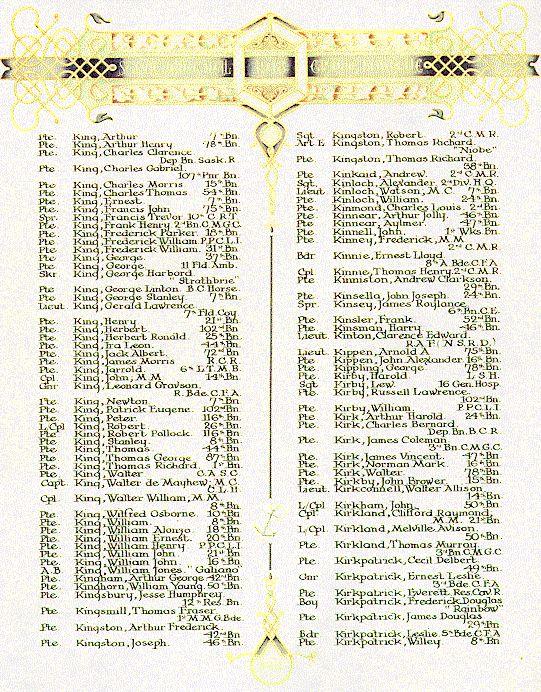 Pte. King, Arthur 7th Bn.
Pte. King, Arthur Henry 78th Bn.
Pte. King, Charles Clarence
Dep Bn. Sask. R
Pte. King, Charles Gabriel
107th Pnr Bn.
Pte. King, Charles Morris 15th Bn.
Pte. King, Charles Thomas 54th Bn.
Pte. King, Ernest 7th Bn.
Pte. King, Francis John 75th Bn.
Spr. King, Francis Trevor 10th C.R.T
Pte. King, Frank Henry 2nd Bn. C.M.G.C
Pte. King, Frederick Parker 15th Bn.
Pte. King, Frederick William P.P.C.L.I
Pte. King, Frederick William 31st Bn.
Pte. King, George 37th Bn.
Pte. King, George 11 Fld. Amb.
Skr. King, George Harbord
"Strathbrie"
Pte. King, George Linton B.C. Horse.
Pte. King, George Stanley 7th Bn.
Lieut. King, Gerald Lawrence
7th Fld Coy
Pte. King, Henry 21st Bn.
Pte. King, Herbert 102nd Bn.
Pte. King, Herbert Ronald 25th Bn.
Pte. King, Ira Leon 44th Bn.
Pte. King, Jack Albert 72nd Bn
Pte. King, James Morris R.C.R.
Pte. King, Jarrold 6th L.T.M.B.
Cpl. King, John, M.M. 14th Bn.
Gnr King, Leonard Grayson,
R. Bde. C.F.A.
Pte. King, Newton 7th Bn.
Pte. King, Patrick Eugene 102nd Bn.
Pte. King, Peter 116th Bn.
L/Cpl King, Robert 26th Bn.
Pte. King, Robert Pollock 116th Bn.
Pte. King, Stanley 8th Bn.
Pte. King, Thomas 44th Bn
Pte. King, Thomas George 87th Bn.
Pte. King, Thomas Richard 1st Bn.
Pte. King, Walter C.A.S.C.
Capt. King, Walter de Mayhew, M.C.
G.L.H.
Cpl. King, Walter William, M.M.
8th Bn.
Pte. King, Wilfred Osborne 10th Bn.
Pte. King, William 8th Bn.
Pte. King, William Alonzo 18th Bn.
Pte. King, William Ernest 20th Bn
Pte. King, William Henry P.P.C.L.I
Pte. King, William John 21st Bn
Pte. King, William John 16th Bn.
A.B. King, William Jones "Galiano"
Pte. Kingham, Arthur George 42nd Bn
Pte. Kinghorn, William Young 50th Bn.
Pte. Kingsbury, Jesse Humphrey
12th Res. Bn.
Pte. Kingsmill, Thomas Fraser
1st M.M.G. Bde.
Pte. Kingston, Arthur Frederick
42nd Bn
Pte. Kingston, Joseph 46th Bn.
Sgt Kingston, Robert 2nd C.M.R.
Art. E Kingston, Thomas Richard
"Niobe"
Pte. Kingston, Thomas Richard
38th Bn.
Pte Kinkaid, Andrew 2nd C.M.R.
Sgt. Kinloch, Alexander 2nd Div. H.Q.
Lieut. Kinloch, Watson, M.C. 7th Bn.
Pte. Kinloch, William 24th Bn.
Pte. Kinmond, Charles Louis 2nd Bn.
Pte. Kinnear, Arthur Jolly 46th Bn.
Pte. Kinnear, Aylmer 47th Bn.
Pte. Kinnell, John 1st Wks. Bn.
Pte. Kinney, Frederick, M.M
2nd C.M.R.
Bdr Kinnie, Ernest Lloyd
8th A. Bde. C.F.A
Cpl Kinnie, Thomas Henry 2nd C.M.R.
Pte. Kinniston, Andrew Clarkson
29th Bn.
Pte. Kinsella, John Joseph 24th Bn.
Spr. Kinsey, James Roylance
6th Bn. C.E.
Pte. Kinsler, Frank 52nd Bn.
Pte. Kinsman, Harry 46th Bn.
Lieut. Kinton, Clarence Edward
R.A.F. (N.S.R.D.)
Lieut. Kippen, Arnold A 75th Bn.
Pte. Kippen, John Alexander 16th Bn.
Pte. Kippling, George 78th Bn.
Pte. Kirby, Harold L.S.H.
Sgt Kirby, Lew. 16 Gen. Hosp.
Pte. Kirby, Russell Lawrence
102nd Bn.
Pte. Kirby, William P.P.C.L.I
Pte. Kirk, Arthur Harold 24th Bn.
Pte. Kirk, Charles Bernard
Dep. Bn. B.C.R.
Pte. Kirk, James Coleman
3rd Bn. C.M.G.C.
Pte. Kirk, James Vincent 47th Bn.
Pte. Kirk, Norman Mark 16th Bn.
Pte. Kirk, Walter 78th Bn.
Pte. Kirkby, John Brower 15th Bn.
Lieut. Kirkconnell, Walter Allison
14th Bn.
L/Cpl Kirkham, John 50th Bn.
Cpl Kirkland, Clifford Raymond,
M.M. 21st Bn.
L/Cpl. Kirkland, Melville Avison
50th Bn.
Pte. Kirkland, Thomas Murray
3rd Bn. C.M.G.C
Pte. Kirkpatrick, Cecil Delbert
49th Bn.
Gnr Kirkpatrick, Ernest Leslie
3rd Bde. C.F.A
Pte Kirkpatrick, Everett Res. Cav. R.
Boy Kirkpatrick, Frederick Douglas
"Rainbow"
Pte. Kirkpatrick, James Douglas
29th Bn
Bdr Kirkpatrick, Leslie 5th Bde. C.F.A
Pte. Kirkpatrick, Willey 8th Bn.